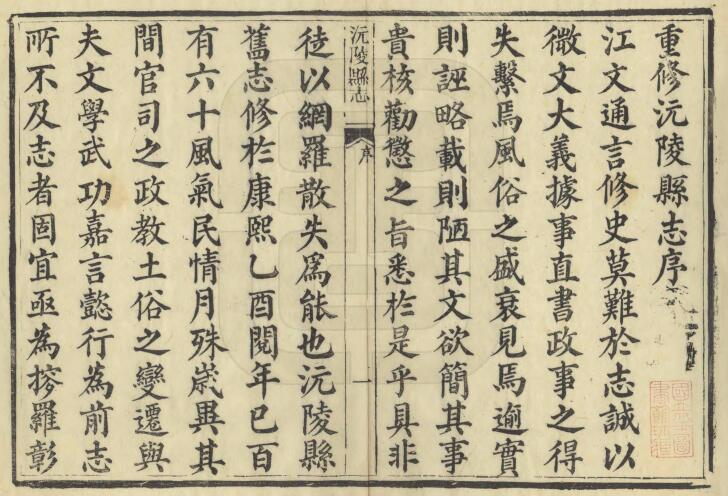 重修沅陵縣志序
江文通言修史莫難於志誠以
微文大義據事直書政事之得
失繫焉風俗之盛衰見焉逾實
則誣略載則陋其文欲簡其事
貴核勸懲之旨悉於是乎具非
沅陵縣志
序
一
徒以網羅散失為能也沅陵縣
舊志修於康熙乙酉閱年巳百
有六十風氣民情月殊歲異其
間官司之政教土俗之變遷與
夫文學武功嘉言懿行為前志
所不及志者固宜亟為搜羅彰